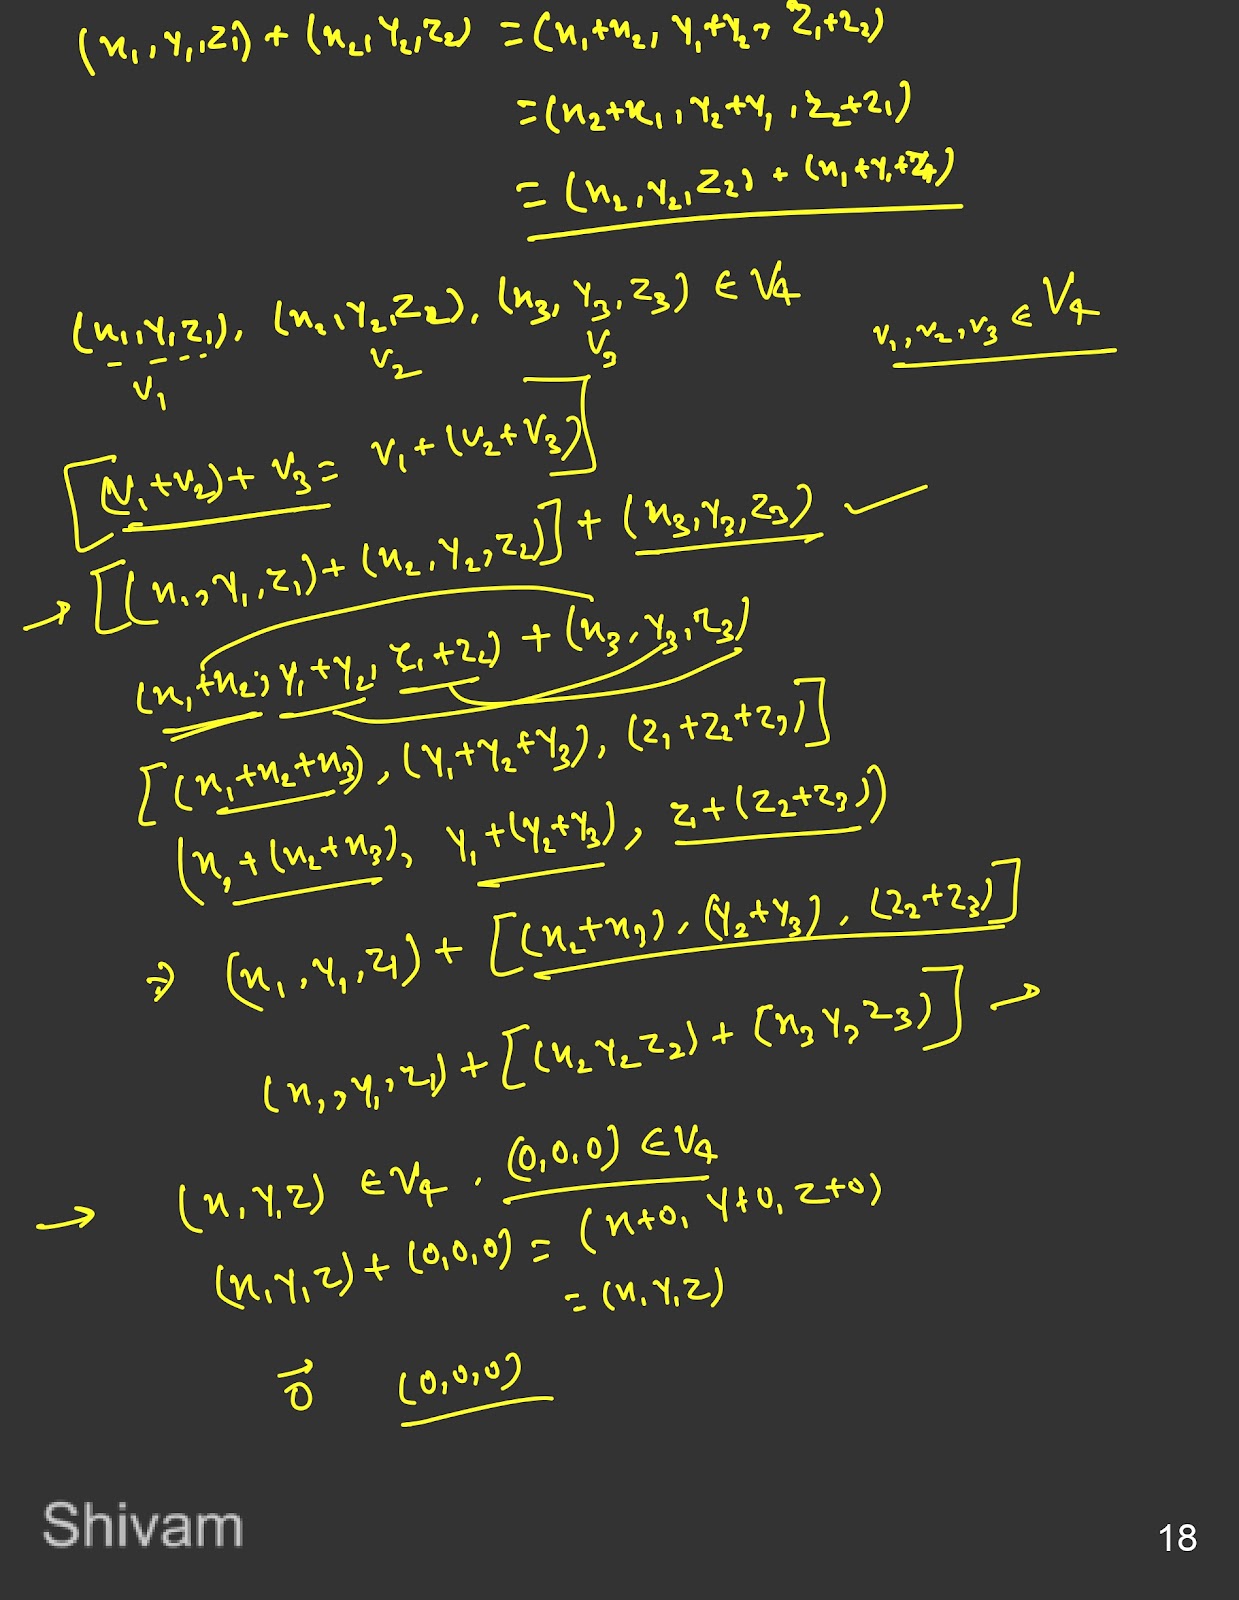 (x₁, y₁, z₁) + (x₂, y₂, z₂) = (x₁+x₂, y₁+y₂, z₁+z₂)
= (x₂+x₁, y₂+y₁, z₂+z₁)
= (x₂, y₂, z₂) + (x₁+y₁+z₁)
(x₁, y₁, z₁), (x₂, y₂, z₂), (x₃, y₃, z₃) ∈ V₄
v₁ v₂ v₃
v₁, v₂, v₃ ∈ V₄
[(v₁+v₂)+v₃ = v₁+(v₂+v₃)]
→ [(x₁, y₁, z₁) + (x₂, y₂, z₂)] + (x₃, y₃, z₃) ✓
(x₁+x₂, y₁+y₂, z₁+z₂) + (x₃, y₃, z₃)
[(x₁+x₂+x₃), (y₁+y₂+y₃), (z₁+z₂+z₃)]
(x₁+(x₂+x₃), y₁+(y₂+y₃), z+(z₂+z₃))
⇒ (x₁, y₁, z₁) + [(x₂+x₃), (y₂+y₃), (z₂+z₃)]
(x₁, y₁, z₁) + [(x₂ y₂ z₂) + (x₃ y₃ z₃)] →
→ (x, y, z) ∈ V₄, (0,0,0) ∈ V₄
(x, y, z) + (0,0,0) = (x+0, y+0, z+0)
= (x, y, z)
0⃗ (0,0,0)
Shivam
18